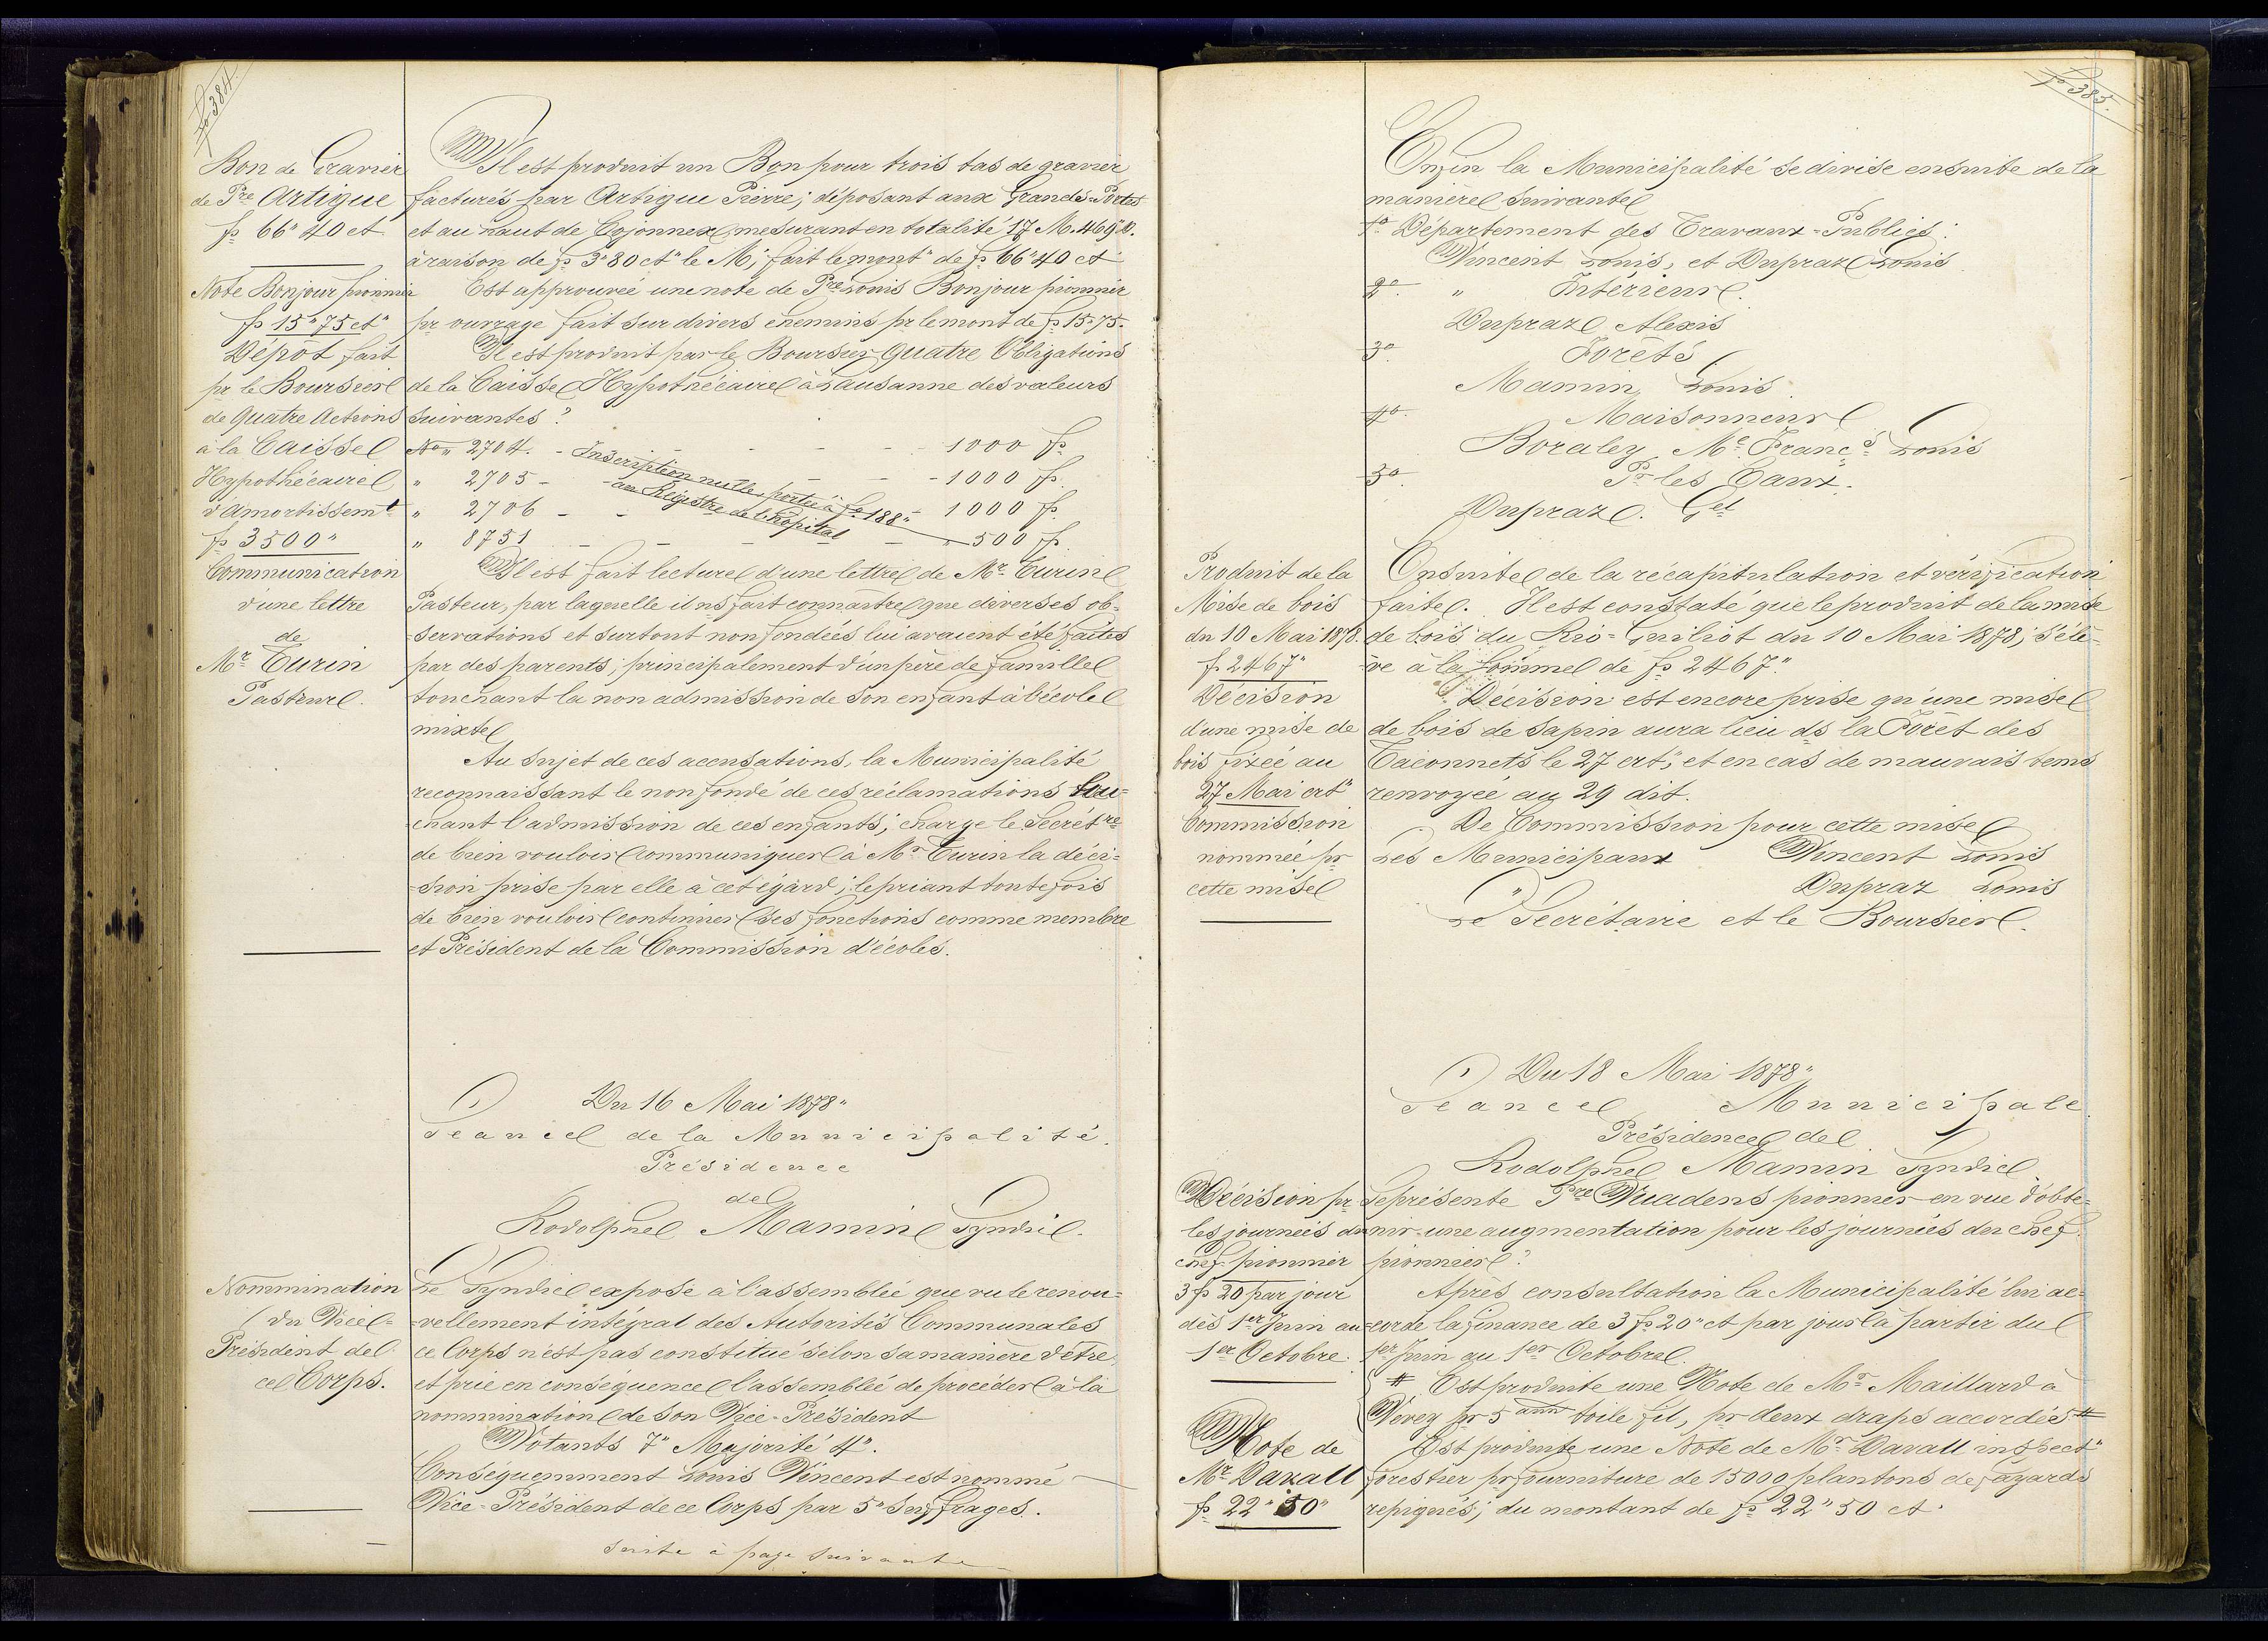 fo 384.
Bon de Gravier
de Pre Artigue
fs 66" 40 ct
Note Bonjour pionnier
fs 15" 75 ct"
Dépôt fait
pr le Boursier
de Quatre Actions
à la Caisse
Hypothécaire
d'Amortissemt
fs 3500"
Communication
d'une lettre
de
Mr Turin
Pasteur.
Il est produit un Bon pour trois tas de gravier
facturés par Artigue Pierre; déposant aux Grands-Portes
et au haut de Cojonnex mesurant en totalité 17 M. 469"
à raison de fs 3"80 ct" le M; fait le mont" de fs 66"40 ct
Est approuvée une note de Pre Louis Bonjour pionnier
pr ouvrage fait sur divers chemins pr le mont de fs 15"75.
Il est produit par le Boursier Quatre Obligations
de la Caisse Hypothécaire à Lausanne des valeurs
suivantes?
No" 2704. - - - - - 1000 fs.
" 2705 - - - - - 1000 fs.
" 2706 - - - 1000 fs.
" 8751 - - - - - " 500 fs.
Inscription nulle, portée à fo 188"
au Régistre de l'hôpital
Il est fait lecture d'une lettre de Mr Turin
Pasteur, par laquelle il ns fait connaître que diverses ob-
-servations et surtout non fondées lui avaient été faites
par des parents; principalement d'un père de famille
touchant la non admission de son enfant à l'école
mixte
Au sujet de ces accusations, la Municipalité
reconnaissant le non fondé de ces réclamations tou-
-chant l'admission de ces enfants; charge le Secrétre
de bien vouloir communiquer à Mr Turin la déci-
-sion prise par elle à cet égard; le priant toutefois
de bien vouloir continuer ses fonctions comme membre
et Président de la Commission d'écoles.
Du 16 Mai 1878"
Séance de la Municipalité.
Présidence
de
Rodolphe Mamin Syndic.
Nommination
du Vice-
Président de
ce Corps.
Le Syndic expose à l'assemblée que vu le renou-
-vellement intégral des Autorités Communales
ce Corps n'est pas constitué selon sa manière d'être,
et prie en conséquence l'assemblée de procéder à la
nommination de son Vice-Président
Votants 7" Majorité 4".
Conséquemment Louis Vincent est nommé
Vice-Président de ce Corps par 5" Suffrages.
Suite à page suivante
fo 385.
Enfin la Municipalité se divise ensuite de la
manière suivante
1o Département des Travaux-Publics:
Vincent Louis, et Dupraz Louis
2o " Intérieur.
Dupraz Alexis
3o Forêts
Mamin Louis
4o. Maisonneur
Boraley Mc Francs Louis
5o. Pr les Eaux.
Dupraz. Gel
Produit de la
Mise de bois
du 10 Mai 1878.
fs 2467"
Décision
d'une mise de
bois fixée au
27 Mai crt"
Commission
nommée pr
cette mise
Ensuite de la récapitulation et vérification
faite. Il est constaté que le produit de la mise
de bois du Rio-Guiliot du 10 Mai 1878; s'élè-
-ve à la somme de fs 2467"
Décision est encore prise qu'une mise
de bois de sapin aura lieu ds la Forêt des
Taconnets le 27 crt"; et en cas de mauvais tems
renvoyée au 29 dit.
De Commission pour cette mise
Les Municipaux Vincent Louis
" Dupraz Louis
Le Secrétaire et le Boursier.
Du 18 Mai 1878"
Séance Municipale
Présidence de
Rodolphe Mamin Syndic
Décision pr
les journées du
chef-pionnier
3 fs 20 par jour
dès 1er Juin au
1er Octobre.
Se présente Pre Vuadens pionnier en vue d'obte-
nir une augmentation pour les journées de chef
pionnier?
Après consultation la Municipalité lui ac-
-corde la finance de 3 fs 20" ct par jour à partir du
1er Juin au 1er Octobre.
# Est produite une Note de Mr Maillard à
Vevey pr 5 aun toile fil, pr deux draps accordés #
Note de
Mr Davall
fs 22" 50"
Est produite une Note de Mr Davall inspect"
forestier pr fourniture de 15000 plantons de fayards
repiqués; du montant de fs 22" 50 ct